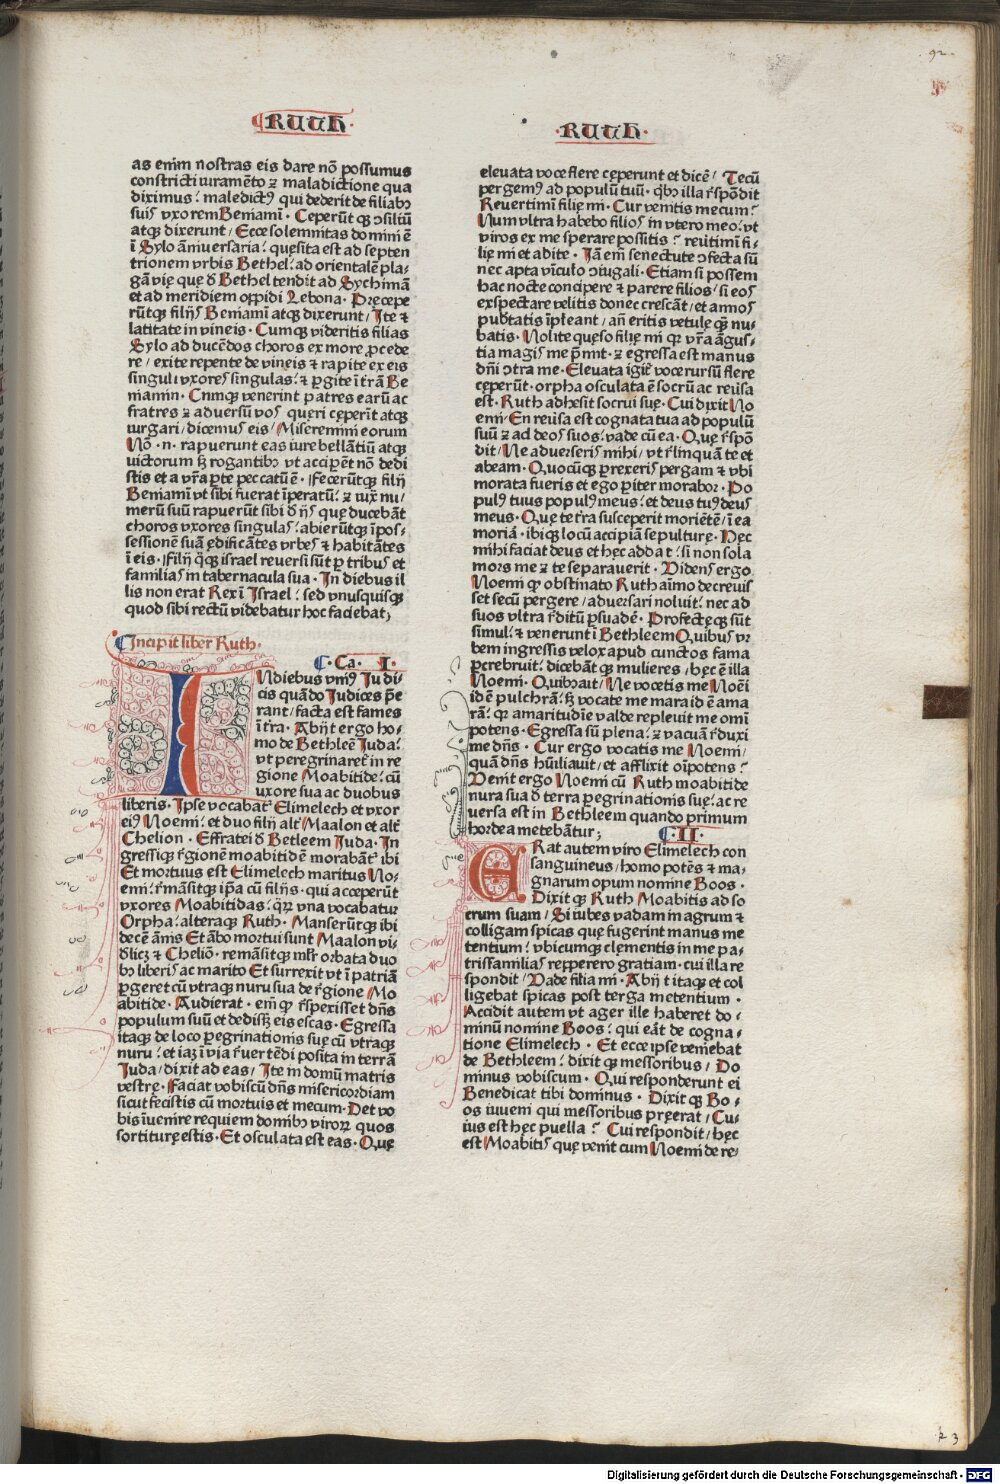 92
RUTH
RUTH
as enim nostras eis dare nõ possumus
constricti iuramẽto ⁊ maladictione qua
diximus: maledictꝰ qui dederit de filiabꝰ
suis vxorem Beniami. Ceperũt qꝫ ↄsiliũ
atqꝫ dixerunt/ Ecce solemnitas domini ẽ
ĩ Sylo ãniuersaria: quęsita est ad septen
trionem vrbis Bethel: ad orientalẽ pla-
gã vię que đ Bethel tendit ad Sychimã
et ad meridiem oppidi Lebona. Pręcepe
rũtqꝫ filijs Beniami atqꝫ dixerunt/ Ite ⁊
latitate in vineis. Cumqꝫ videritis filias
Sylo ad ducẽdos choros ex more ꝓcede
re/ exite repente de vineis ⁊ rapite ex eis
singuli vxores singulas: ⁊ ꝑgite ĩ t̃rã Be
niamin. Cumqꝫ venerint patres earũ ac
fratres ⁊ aduersũ vos queri cęperĩt atqꝫ
iurgari/ dicemus eis/ Miseremini eorum
Nõ.n. rapuerunt eas iure bellãtiũ atqꝫ
victorum sꝫ rogantibꝰ vt acciperẽt nõ dedi
stis et a vr̃a ꝑte peccatũ ẽ. Fecerũtqꝫ filij
Beniami vt sibi fuerat ĩperatũ: ⁊ iux̃ nu/
merũ suũ rapuerũt sibi đ ijs quę ducebãt
choros vxores singulas: abierũtqꝫ ĩ pos-
sessionẽ suã ędificãtes vrbes ⁊ habitãtes
ĩ eis. Filij q̃qꝫ israel reuersi sũt ꝑ tribus et
familias in tabernacula sua. In diebus il
lis non erat Rex ĩ Israel: sed vnusquisqꝫ
quod sibi rectũ videbatur hoc faciebat;
Incipit liber Ruth.
Ca. I.
IN diebus vniꝰ Iudi-
cis quãdo Iudices p̃e
rant/ facta est fames
ĩ t̃ra. Abijt ergo ho-
mo de Bethleẽ Iuda:
vt peregrinaret̃ in re
gione Moabitide: cũ
vxore sua ac duobus
liberis. Ipse vocabat̃ Elimelech et vxor
eiꝰ Noemi: et duo filij alt̃ Maalon et alt̃
Chelion. Effratei đ Betleem Iuda. In
gressiqꝫ r̃gionẽ moabitidẽ morabãt̃ ibi
Et mortuus est Elimelech maritus No-
emi: r̃mãsitqꝫ ip̃a cũ filijs. qui acceperũt
vxores Moabitidas: qꝝ vna vocabatur
Orpha: alteraqꝫ Ruth. Manserũtqꝫ ibi
decẽ ãnis Et ãbo mortui sunt Maalon vi/
đlicꝫ ⁊ Cheliõ. remãsitqꝫ ml̃r orbata duo
bꝰ liberis ac marito Et surrexit vt ĩ patriã
ꝑgeret cũ vtraqꝫ nuru sua de r̃gione Mo
abitide. Audierat. em̃ qꝫ r̃spexisset dñs
populum suũ et dedisꝫ eis escas. Egressa
itaqꝫ de loco ꝑegrinationis suę cũ vtraqꝫ
nuru: et iaꝫ ĩ via r̃uertẽdi posita in terrã
Iuda/ dixit ad eas/ Ite in domũ matris
vestrę. Faciat vobiscũ dñs misericordiam
sicut fecistis cũ mortuis et mecum. Det vo
bis ĩuenire requiem domibꝰ viroꝝ quos
sortiturę estis. Et osculata est eas. Quę
eleuata voce flere cęperunt et dicẽ/ Tecũ
pergemꝰ ad populũ tuũ. qbꝰ illa r̃spõdit
Reuertimĩ filię mi. Cur venitis mecum?
Num vltra habebo filios in vtero meo: vt
viros ex me sperare possitis? reũtimĩ fi-
lię mi et abite. Iã em̃ senectute ↄfecta sũ
nec apta vĩculo ↄiugali. Etiam si possem
hac nocte concipere ⁊ parere filios/ si eos
exspectare velitis donec crescãt/ et annos
pubtatis ĩpleant/ añ eritis vetulę qꝫ nu-
batis. Nolite quęso filię mi qꝛ vr̃a ãgus-
tia magis me p̃mit. ⁊ egressa est manus
dñi ↄtra me. Eleuata igit̃ voce rursũ flere
cęperũt. orpha osculata ẽ socrũ ac reũsa
est. Ruth adhesit socrui suę. Cui dixit No
emi/ En reũsa est cognata tua ad populũ
suũ ⁊ ad deos suos: vade cũ ea. Quę r̃spõ
dit/ Ne aduerseris mihi/ vt r̃linquã te et
abeam. Quocũqꝫ ꝑrexeris pergam ⁊ vbi
morata fueris et ego ꝑiter morabor. Po
pulꝰ tuus populꝰ meus: et deus tuꝰ deus
meus. Quę te t̃ra susceperit moriẽtẽ/ ĩ ea
moriã. ibiqꝫ locũ accipiã sepulturę. Hęc
mihi faciat deus et hęc addat: si non sola
mors me ⁊ te separauerit. Videns ergo
Noemi qꝫ obstinato Ruth aĩmo decreuis
set secũ pergere/ aduersari noluit: nec ad
suos vltra r̃ditũ ꝑsuadẽ. Profectęqꝫ sũt
simul: ⁊ venerunt ĩ Bethleem Quibus vr
bem ingressis velox apud cunctos fama
ꝑcrebruit: dicebãt qꝫ mulieres/ hęc ẽ illa
Noemi. Quibꝰ ait/ Ne vocetis me Noẽi
id ẽ pulchrã: sꝫ vocate me mara id ẽ ama
rã: qꝛ amaritudĩe valde repleuit me omĩ
potens. Egressa sũ plena: ⁊ vacuã r̃duxi
me dñs. Cur ergo vocatis me Noemi/
quã dñs hũiliauit/ et afflixit oĩpotens?
Venit ergo Noemi cũ Ruth moabitide
nura sua đ terra ꝑegrinationis suę: ac re
uersa est in Bethleem quando primum
hordea metebãtur;
II.
ERat autem viro Elimelech con
sanguineus/ homo potẽs ⁊ ma-
gnarum opum nomine Boos.
Dixit qꝫ Ruth Moabitis ad so
crum suam/ Si iubes vadam in agrum ⁊
colligam spicas quę fugerint manus me
tentium: vbicumqꝫ clementis in me pa-
trisfamilias reꝑꝑerero gratiam. cui illa re
spondit/ Vade filia mi. Abijt itaqꝫ et col
ligebat spicas post terga metentium.
Accidit autem vt ager ille haberet do-
minũ nomine Boos: qui eãt de cogna-
tione Elimelech. Et ecce ipse veniebat
de Bethleem: dixit qꝫ messoribus/ Do
minus vobiscum. Qui responderunt ei
Benedicat tibi dominus. Dixit qꝫ Bo-
os iuueni qui messoribus pręerat/ Cu-
ius est hęc puella? Cui respondit/ hęc
est Moabitis quę venit cum Noemi de re/
k 3
Digitalisierung gefördert durch die Deutsche Forschungsgemeinschaft - DFG